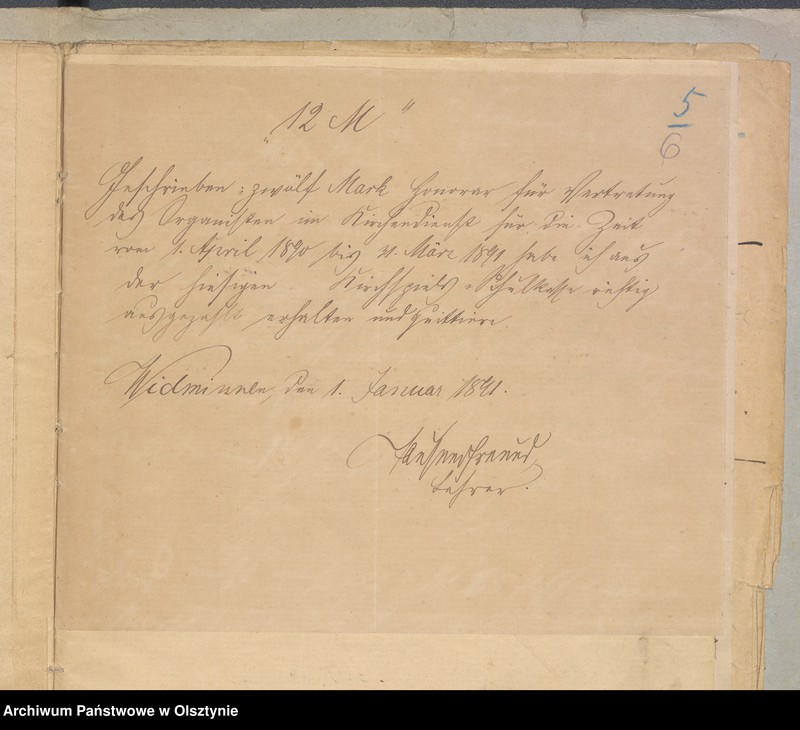 5
6
„12 M"
Geschrieben: zwölf Mark Honorar für Vertretung
des Organisten im Kirchendienst für die Zeit
vom 1. April 1890 bis 31. März 1891 habe ich aus
der hiesigen Kirchspiels-Schulkasse richtig
ausgezahlt erhalten und quittiere
Widminnen, den 1. Januar 1891.
Lehrer.
Archiwum Państwowe w Olsztynie